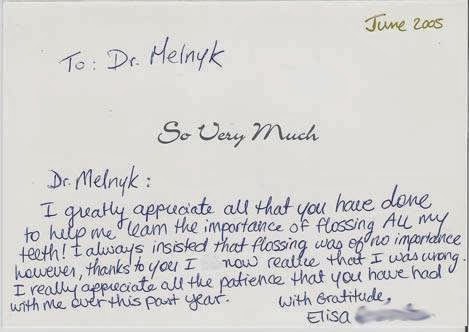 June 2005
To: Dr. Melnyk
So Very Much
Dr. Melnyk:
I greatly appreciate all that you have done
to help me learn the importance of flossing All my
teeth! I always insisted that flossing was of no importance
however, thanks to you I now realize that I was wrong.
I really appreciate all the patience that you have had
with me over this past year.
With Gratitude,
Elisa